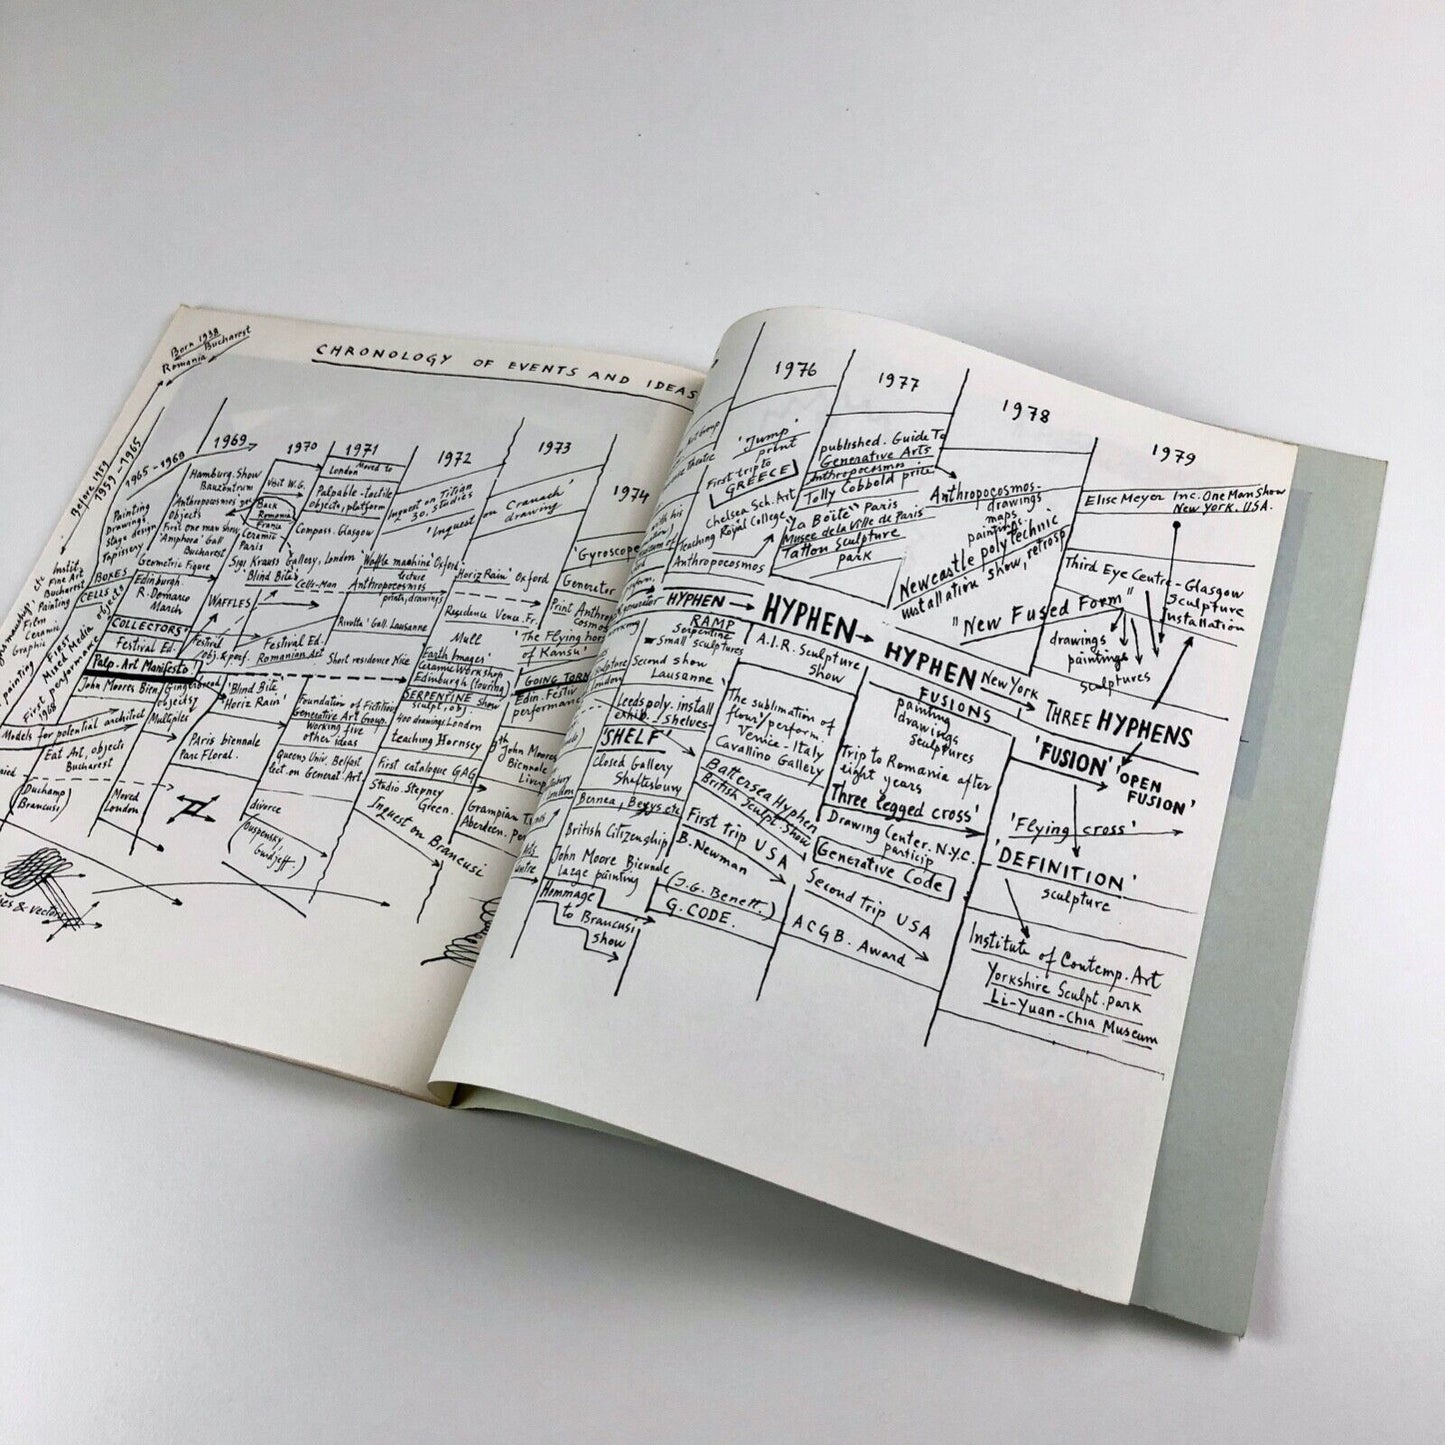 Born 1938
Romania Bucharest
CHRONOLOGY OF EVENTS AND IDEAS
Before 1959
1959-1965
1965-1968
1969
1970
1971
1972
1973
1974
Painting
Drawings
Stage design
Tapissery
BOXES
CELLS
Instit.
Fine Art
Bucharest
Painting
Film
Ceramic
Graphic
FIRST
Mixed Media objects
First performance
1968
Models for potential architect
Hamburg. Show
Bauzentrum
Anthropocosmos
Objects
First one man show
'Amphora' Gall
Bucharest
Geometric Figure
Edinburgh.
R. Demarco
March
COLLECTORS
Festival Ed.
Palp. Art Manifesto
John Moores Bien
Gingerbread
objects
Multiples
Eat Art, objects
Bucharest
(Duchamp
Brancusi)
Moved
London
Visit W.G.
Back
Romania
France
Ceramic
Paris
Sigi Krauss Gallery, London
'Blind Bite'
Cells-Man
WAFFLES
Festival
obj. & perf.
Festival Ed.
Romanian Art
'Blind Bite'
'Horiz Rain'
Paris biennale
Parc Floral.
divorce
(Ouspensky,
Gurdjeff)
London Moved to
Palpable-tactile
objects, platform
Compass. Glasgow
'Waffle machine' Oxford
lecture
Anthropocosmos
prints, drawings
Rivolta' Gall. Lausanne
Short residence Nice
Foundation of Fiction
Generative Art Group.
Working five
other ideas
Queens Univ. Belfast
lect. on Generat. Art
Inquest on Titian
30. Studies
'Inquest'
'Horiz Rain' Oxford
Residence Vence. Fr.
Mull
'Earth Images'
Ceramic Workshop
Edinburgh (touring)
SERPENTINE show
sculpt, obj.
400 drawings London
teaching Hornsey
First catalogue GAG
Studio. Stepney
Green.
Inquest on Brancusi
on Cranach'
drawing
'Gyroscope
Generator
Print Anthropo
cosmos
'The Flying horse
of Kansu'
GOING TORN
Edin. Festiv
performance
9th John Moores
Biennale
Liverp
Grampian T
Aberdeen.
& vectors
1976
1977
1978
1979
'Jump'
print
First trip to
GREECE
Chelsea Sch. Art
Teaching Royal College
Anthropocosmos
published. Guide To
Generative Arts
Anthropocosmos
Tolly Cobbold prize
"La Boite" Paris
Musee de la Ville de Paris
Tatton Sculpture
park
Anthropocosmos-
drawings
maps
paintings
Newcastle polytechnic
installation show, retrosp
"New Fused Form"
drawings
paintings
sculptures
Elise Meyer Inc. One Man Show
New York. USA.
Third Eye Centre-Glasgow
Sculpture
Installation
HYPHEN
HYPHEN
HYPHEN
New York
THREE HYPHENS
RAMP
Serpentine
Small sculptures
Second show
Lausanne
Leeds poly. install
exhib. Shelves-
'SHELF'
Closed Gallery
Shaftesbury
Bernea, Beuys etc
British Citizenship
John Moore Biennale
Large painting
Hommage
to Brancusi
show
A.I.R. Sculpture
Show
The sublimation of
flour/perform.
Venice-Italy
Cavallino Gallery
Battersea Hyphen
British Sculpt. Show
First trip USA
B. Newman
(J.G. Benett.)
G. CODE.
FUSIONS
painting
drawings
sculptures
Trip to Romania after
eight years
'Three legged cross'
Drawing Center. N.Y.C.
particip
Generative Code
Second trip USA
ACGB. Award
'FUSION'
'OPEN
FUSION'
'Flying cross'
'DEFINITION'
sculpture
Institute of Contemp. Art
Yorkshire Sculpt. park
Li-Yuan-Chia Museum